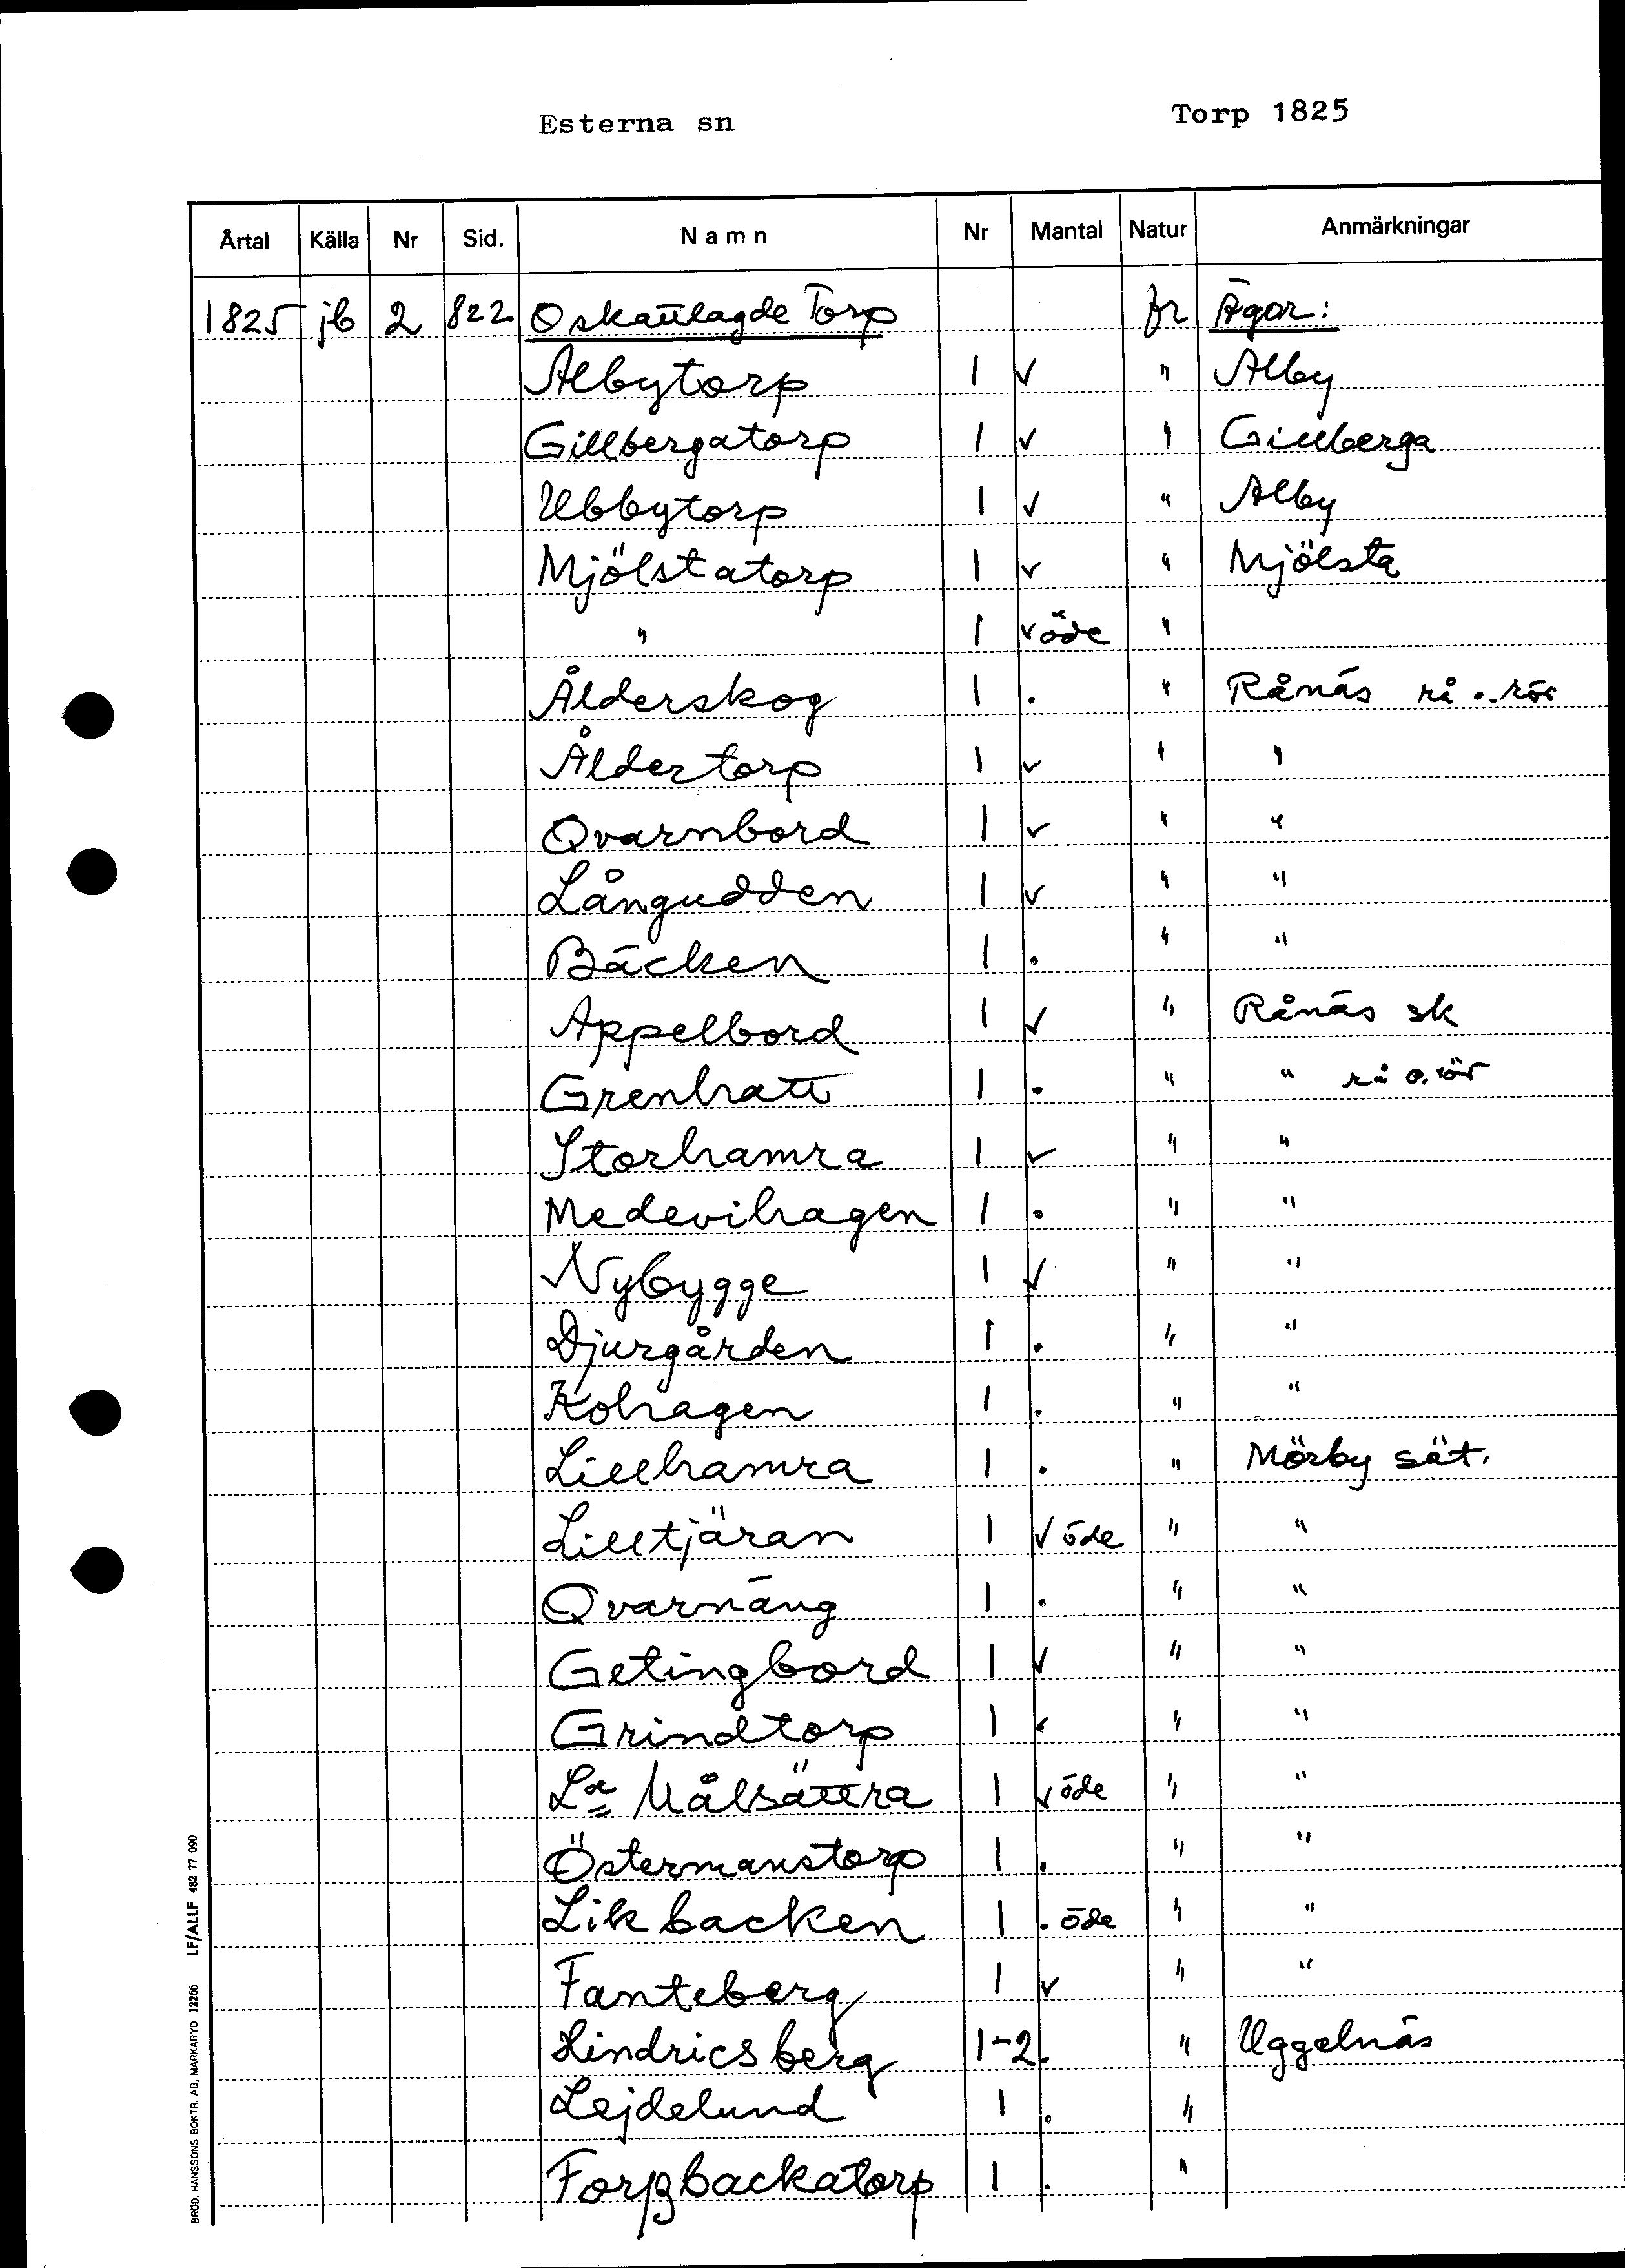 Esterna sn Torp 1825
Årtal Källa Nr Sid. Namn Nr Mantal Natur Anmärkningar
1825 jb 2 822 Oskattlagde Torp fr Ägor:
Albytorp 1 ✓ " Alby
Gillbergatorp 1 ✓ " Gillberga
Ubbytorp 1 ✓ " Alby
Mjölstatorp 1 ✓ " Mjölsta
" 1 ✓ öde "
Ålderskog 1 . " Rånäs rå o. rör
Åldertorp 1 ✓ " "
Qvarnbord 1 ✓ " "
Långudden 1 ✓ " "
Bäcken 1 . " "
Appelbord 1 ✓ " Rånäs sk
Grenhatt 1 . " " rå o. rör
Storhamra 1 ✓ " "
Medevihagen 1 . " "
Nybygge 1 ✓ " "
Djurgården 1 . " "
Kohagen 1 . " "
Lillhamra 1 . " Mörby sät.
Lilltjäran 1 ✓ öde " "
Qvarnäng 1 . " "
Getingbord 1 ✓ " "
Grindtorp 1 ✓ " "
La Målsättra 1 ✓ öde " "
Östermanstorp 1 . " "
Likbacken 1 . öde " "
Fanteberg 1 ✓ " "
Hindricsberg 1-2 . " Uggelnäs
Lejdelund 1 . "
Forßbackatorp 1 . "
BRÖD. HANSSONS BOKTR. AB, MARKARYD 12266 LF/ALLF 482 77 090